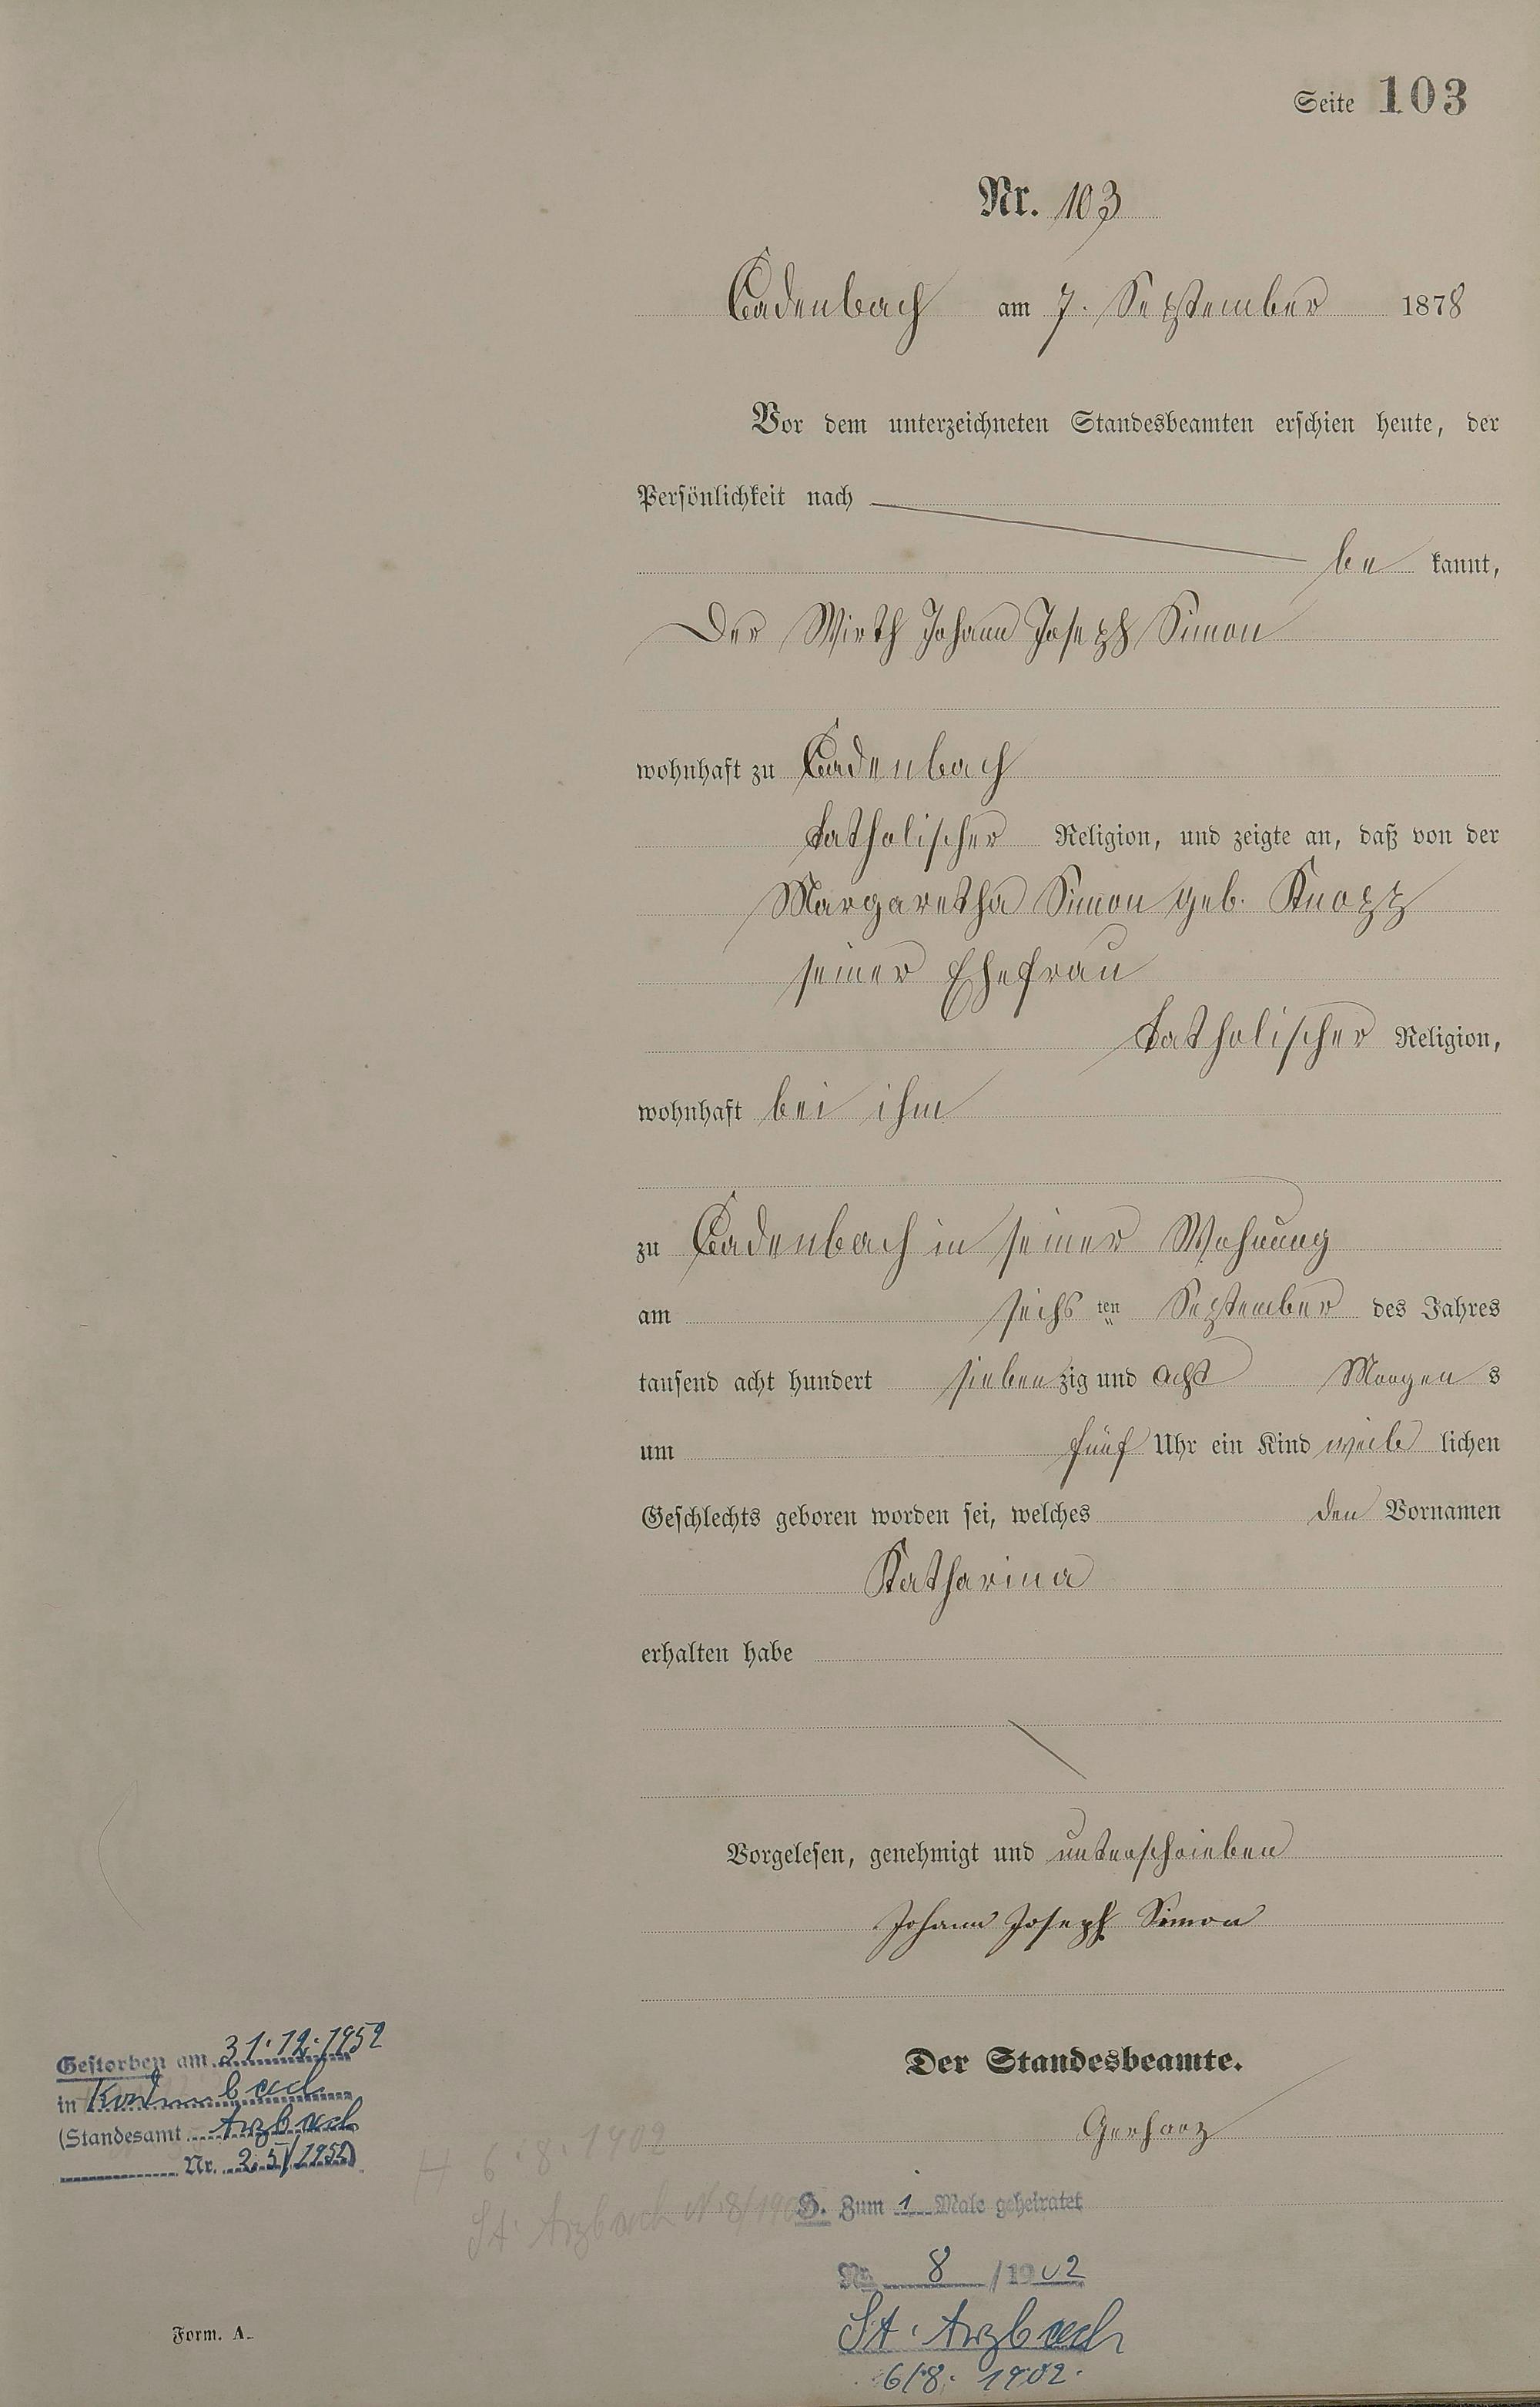 Seite 103
Nr. 103
Cadenbach am 7. September 1878
Vor dem unterzeichneten Standesbeamten erschien heute, der
Persönlichkeit nach
be kannt,
Der Wirth Johann Joseph Simon
wohnhaft zu Cadenbach
katholischer Religion, und zeigte an, daß von der
Margaretha Simon geb. Knopp
seiner Ehefrau
katholischer Religion,
wohnhaft bei ihm
zu Cadenbach in seiner Wohnung
am sechs ten September des Jahres
tausend acht hundert sieben zig und acht Morgen s
um fünf Uhr ein Kind weib lichen
Geschlechts geboren worden sei, welches den Vornamen
Katharina
erhalten habe
Vorgelesen, genehmigt und unterschrieben
Johann Joseph Simon
Der Standesbeamte.
Gerharz
Gestorben am 31.12.1952
in Kadenbach
(Standesamt Arzbach
Nr. 25/1952)
H 6.8.1902
St. Arzbach N. 8/190
H. Zum 1 Male geheiratet
Nr. 8 / 1902
St. Arzbach
6/8. 1902.
Form. A.